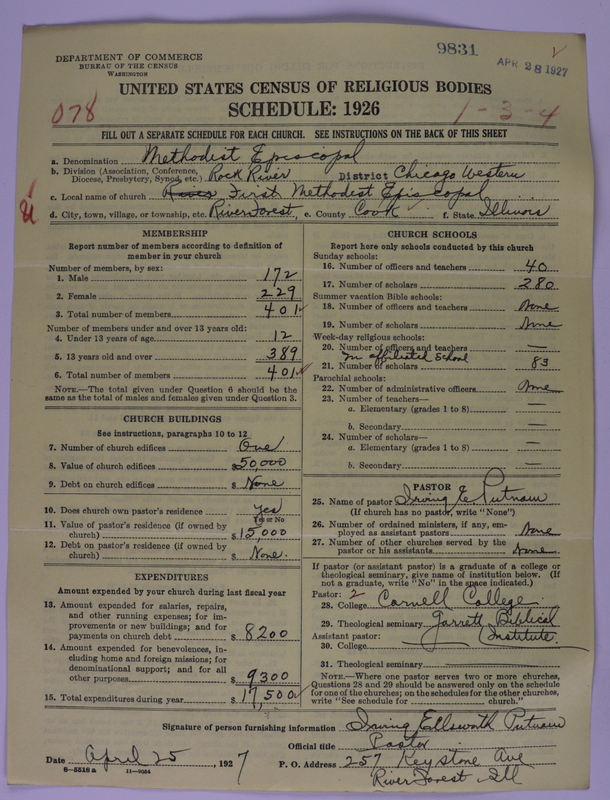 9831
APR 28 1927
DEPARTMENT OF COMMERCE
BUREAU OF THE CENSUS
WASHINGTON
UNITED STATES CENSUS OF RELIGIOUS BODIES
SCHEDULE: 1926
078
1-3-4
FILL OUT A SEPARATE SCHEDULE FOR EACH CHURCH. SEE INSTRUCTIONS ON THE BACK OF THIS SHEET
a. Denomination Methodist Episcopal
b. Division (Association, Conference, Diocese, Presbytery, Synod, etc.) Rock River District Chicago Western
c. Local name of church River First Methodist Episcopal
d. City, town, village, or township, etc. River Forest, e. County Cook f. State Illinois
MEMBERSHIP
Report number of members according to definition of
member in your church
Number of members, by sex:
1. Male 172
2. Female 229
3. Total number of members 401
Number of members under and over 13 years old:
4. Under 13 years of age 12
5. 13 years old and over 389
6. Total number of members 401
NOTE.—The total given under Question 6 should be
the same as the total of males and females given under Question 3.
CHURCH BUILDINGS
See instructions, paragraphs 10 to 12
7. Number of church edifices One
8. Value of church edifices $50,000
9. Debt on church edifices $ None
10. Does church own pastor's residence Yes
Yes or No
11. Value of pastor's residence (if owned by
church) $15,000
12. Debt on pastor's residence (if owned by
church) $ None.
EXPENDITURES
Amount expended by your church during last fiscal year
13. Amount expended for salaries, repairs,
and other running expenses; for im-
provements or new buildings; and for
payments on church debt $ 8200
14. Amount expended for benevolences, in-
cluding home and foreign missions; for
denominational support; and for all
other purposes $ 9300
15. Total expenditures during year $ 17,500
CHURCH SCHOOLS
Report here only schools conducted by this church
Sunday schools:
16. Number of officers and teachers 40
17. Number of scholars 280
Summer vacation Bible schools:
18. Number of officers and teachers None
19. Number of scholars None
Week-day religious schools:
20. Number of officers and teachers —
In affiliated School
21. Number of scholars 83
Parochial schools:
22. Number of administrative officers None
23. Number of teachers—
a. Elementary (grades 1 to 8) —
b. Secondary —
24. Number of scholars—
a. Elementary (grades 1 to 8) —
b. Secondary —
PASTOR
25. Name of pastor Irving E Putnam
(If church has no pastor, write "None")
26. Number of ordained ministers, if any, em-
ployed as assistant pastors None
27. Number of other churches served by the
pastor or his assistants None
If pastor (or assistant pastor) is a graduate of a college or
theological seminary, give name of institution below. (If
not a graduate, write "No" in the space indicated.)
Pastor: 2
28. College Cornell College
29. Theological seminary Garrett Biblical
Assistant pastor: Institute.
30. College
31. Theological seminary
NOTE.—Where one pastor serves two or more churches,
Questions 28 and 29 should be answered only on the schedule
for one of the churches; on the schedules for the other churches,
write "See schedule for church."
Signature of person furnishing information Irving Ellsworth Putnam
Official title Pastor
Date April 25, 1927 P. O. Address 257 Keystone Ave
8—5516 a 11—9064 River Forest Ill